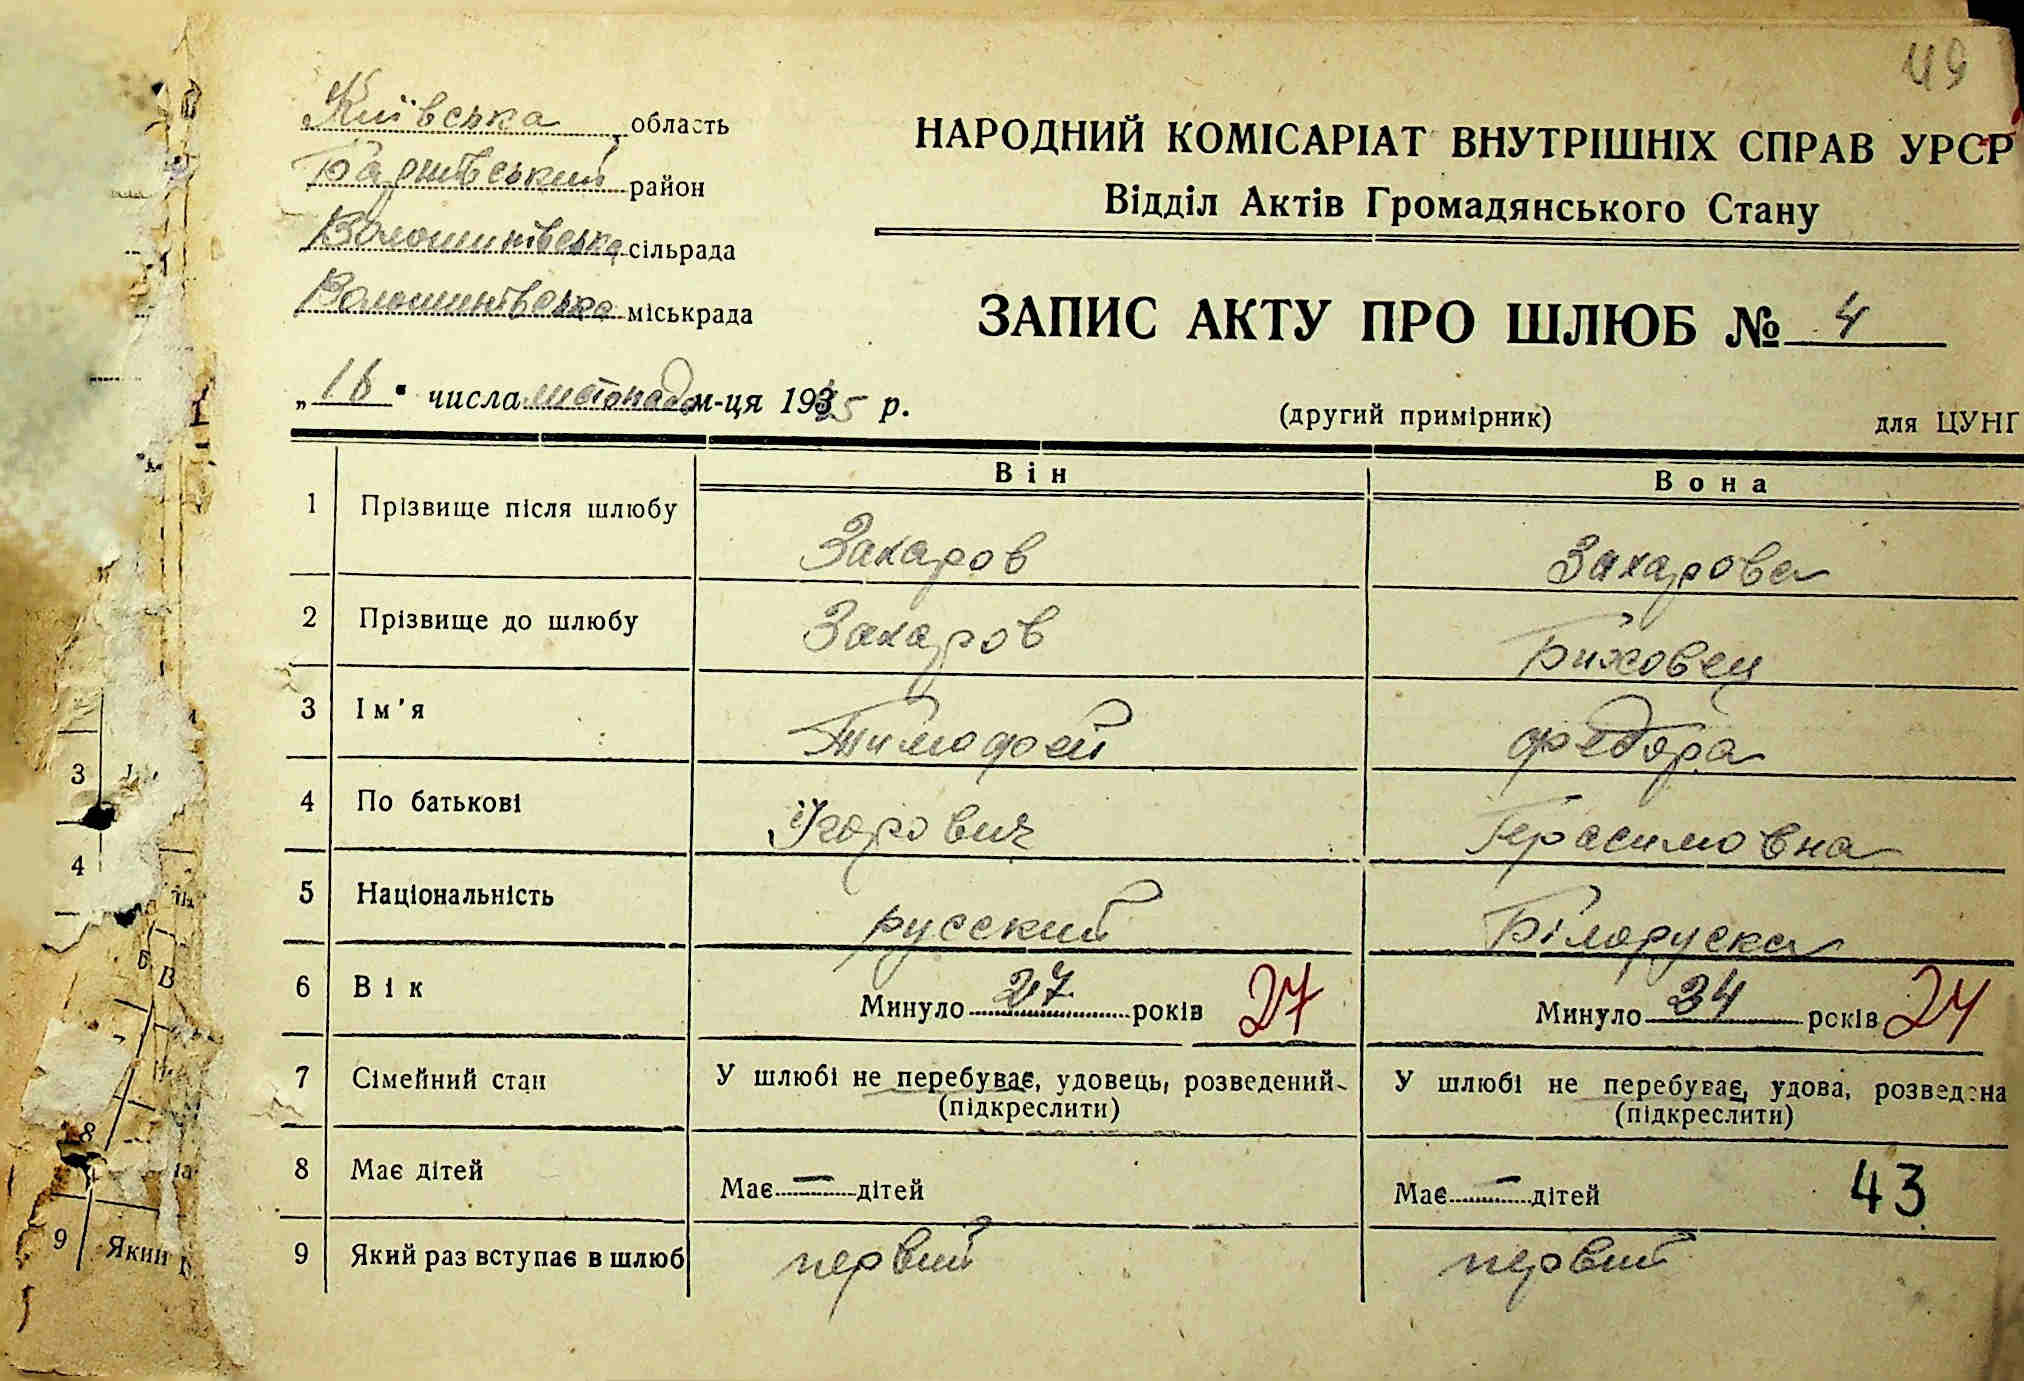 49
Київська область
Баришівський район
Волошинівська сільрада
Волошинівська міськрада
НАРОДНИЙ КОМІСАРІАТ ВНУТРІШНІХ СПРАВ УРСР
Відділ Актів Громадянського Стану
ЗАПИС АКТУ ПРО ШЛЮБ № 4
числа листопада м-ця 1935 р.
(другий примірник) для ЦУНГ
Він Вона
1 Прізвище після шлюбу Захаров Захарова
2 Прізвище до шлюбу Захаров Биховец
3 Ім'я Тимофей Федора
4 По батькові Ігорович Герасимовна
5 Національність русский Білоруска
6 Вік Минуло 27 років 27 Минуло 24 років 24
7 Сімейний стан У шлюбі не перебуває, удовець, розведений У шлюбі не перебуває, удова, розведена
(підкреслити) (підкреслити)
8 Має дітей Має — дітей Має — дітей 43
9 Який раз вступає в шлюб первий первий
3
4
8
9 Який